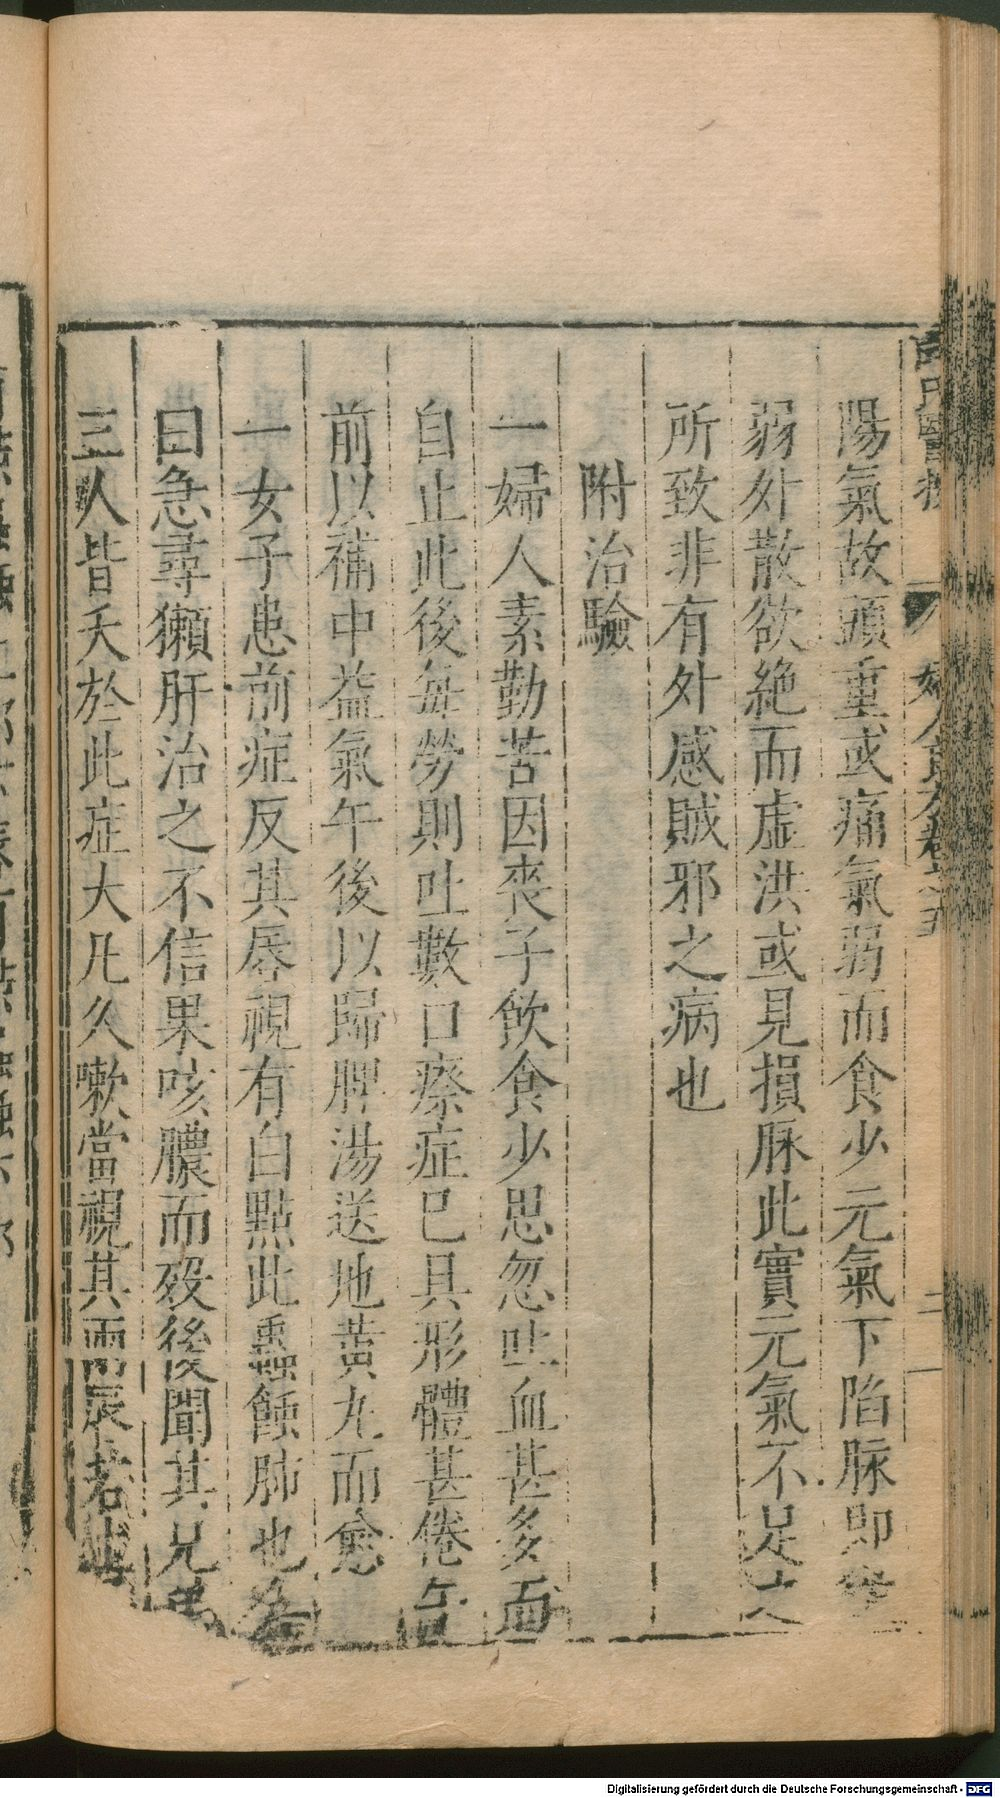 陽氣故頭重或痛氣弱而食少元氣下陷脉即
弱外散欲絶而虛洪或見損脉此實元氣不足之
所致非有外感賊邪之病也
附治驗
一婦人素勤苦因喪子飲食少思忽吐血甚多而
自止此後每勞則吐數口瘵症已具形體甚倦午
前以補中益氣午後以歸脾湯送地黃丸而愈
一女子患前症反其唇視有白點此蟲蝕肺也余
曰急尋獺肝治之不信果咳膿而殁後聞其兄弟
三人皆夭於此症大凡久嗽當視其兩唇若
婦人良方卷之五
二
Digitalisierung gefördert durch die Deutsche Forschungsgemeinschaft - DFG